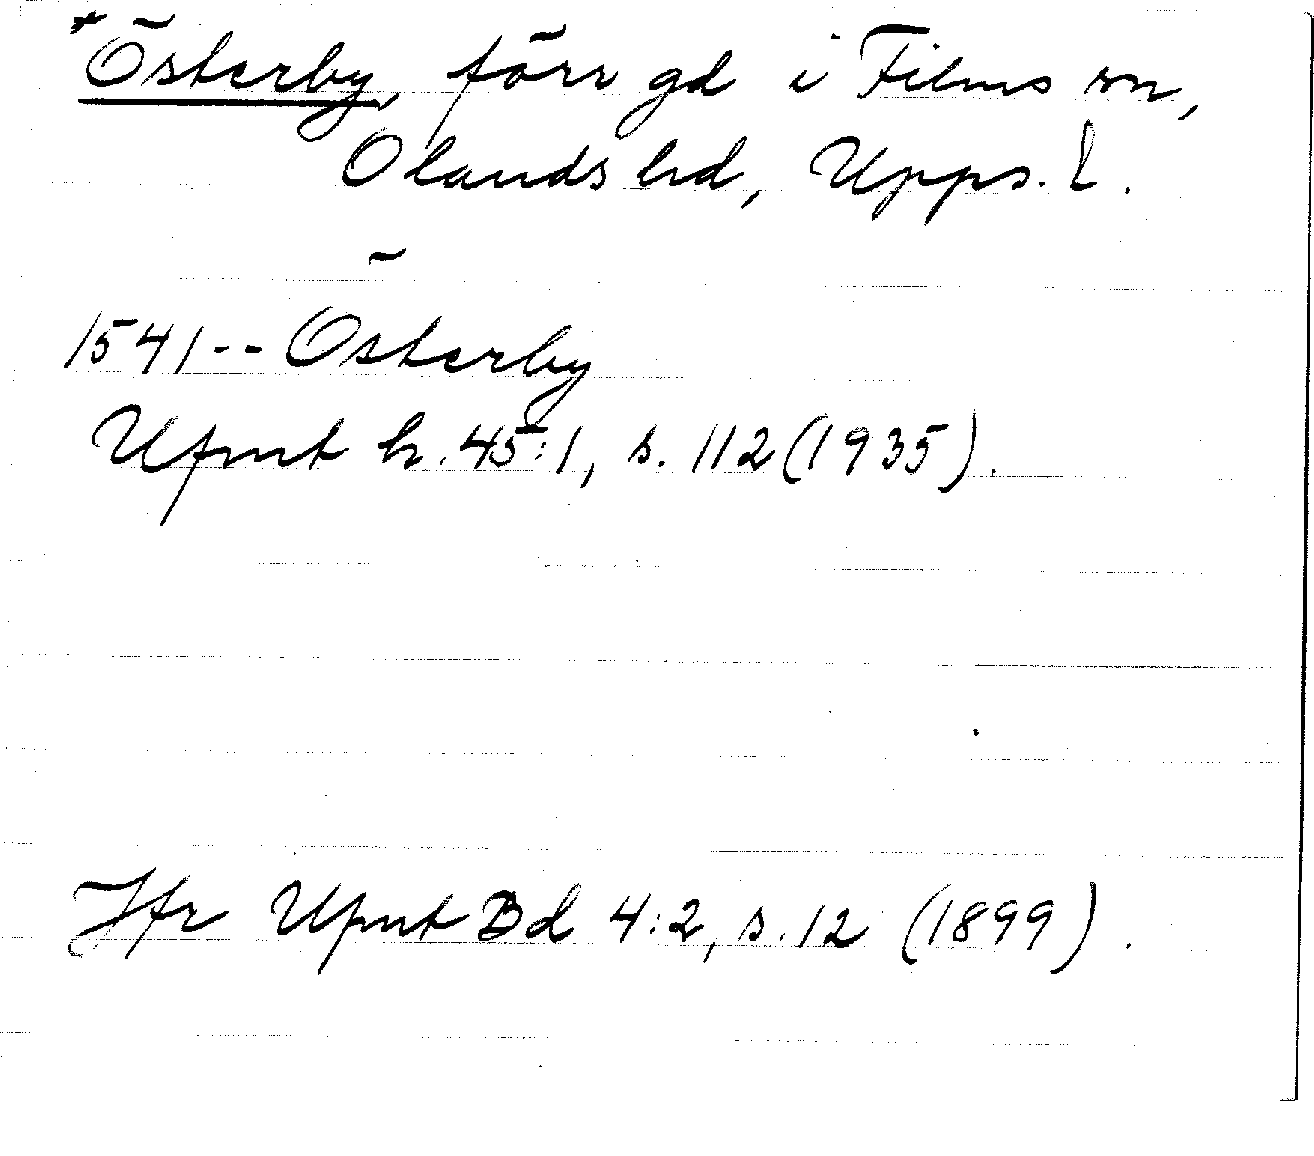 *Österby, förr gd i Films sn,
Olands hd, Upps. l.
1541-- Österby
Ufmt h. 45:1, s. 112 (1935).
Jfr Ufmt Bd 4:2, s. 12 (1899).